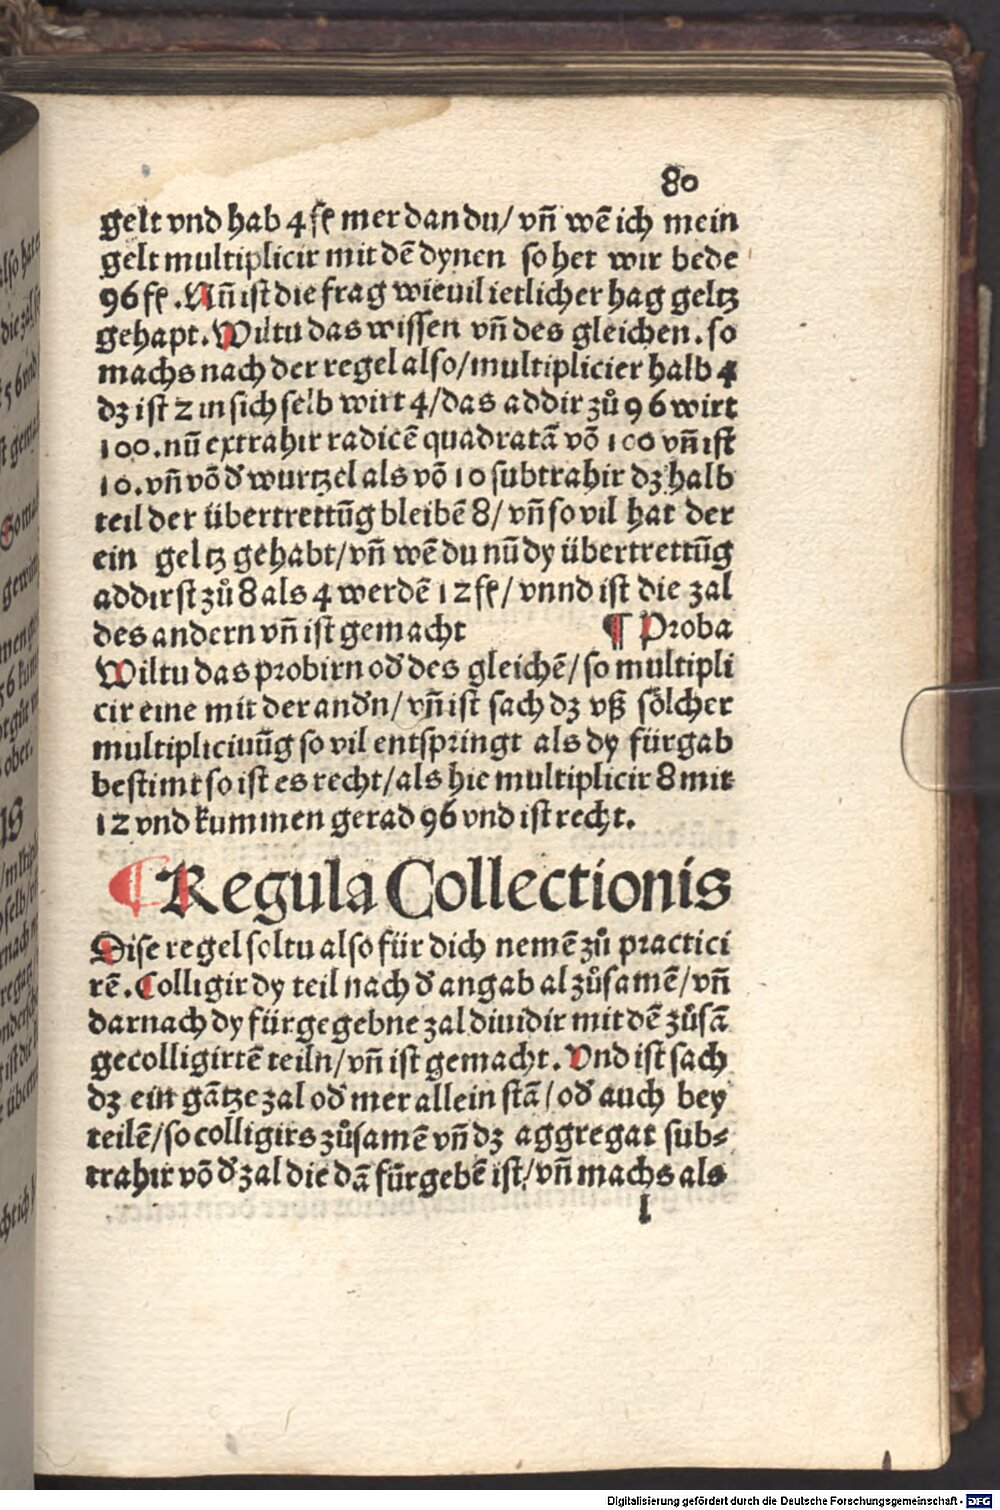 80
gelt vnd hab 4 fl mer dan du/ vñ wẽ ich mein
gelt multiplicir mit dẽ dynen so het wir bede
96 fl. Nũ ist die frag wieuil ietlicher hag geltz
gehapt. Wiltu das wissen vñ des gleichen. so
machs nach der regel also/ multiplicier halb 4
dz ist 2 in sich selb wirt 4/ das addir zů 96 wirt
100. nũ extrahir radicẽ quadratã võ 100 vñ ist
10. vñ võ đ wurtzel als võ 10 subtrahir dz halb
teil der übertrettũg bleibẽ 8/ vñ so vil hat der
ein geltz gehabt/ vñ wẽ du nũ dy übertrettũg
addirst zů 8 als 4 werdẽ 12 fl/ vnnd ist die zal
des andern vñ ist gemacht ¶ Proba
Wiltu das probirn ođ des gleichẽ/ so multipli
cir eine mit der anđn/ vñ ist sach dz vß sölcher
multipliciuũg so vil entspringt als dy fürgab
bestimt so ist es recht/ als hie multiplicir 8 mit
12 vnd kummen gerad 96 vnd ist recht.
¶ Regula Collectionis
Dise regel soltu also für dich nemẽ zů practici
rẽ. Colligir dy teil nach đ angab al zůsamẽ/ vñ
darnach dy fürgegebne zal diuidir mit dẽ zůsã
gecolligirtẽ teiln/ vñ ist gemacht. Vnd ist sach
dz ein gãtze zal ođ mer allein stã/ ođ auch bey
teilẽ/ so colligirs zůsamẽ vñ dz aggregat sub⸗
trahir võ đ zal die dã fürgebẽ ist/ vñ machs als
l
Digitalisierung gefördert durch die Deutsche Forschungsgemeinschaft - DFG